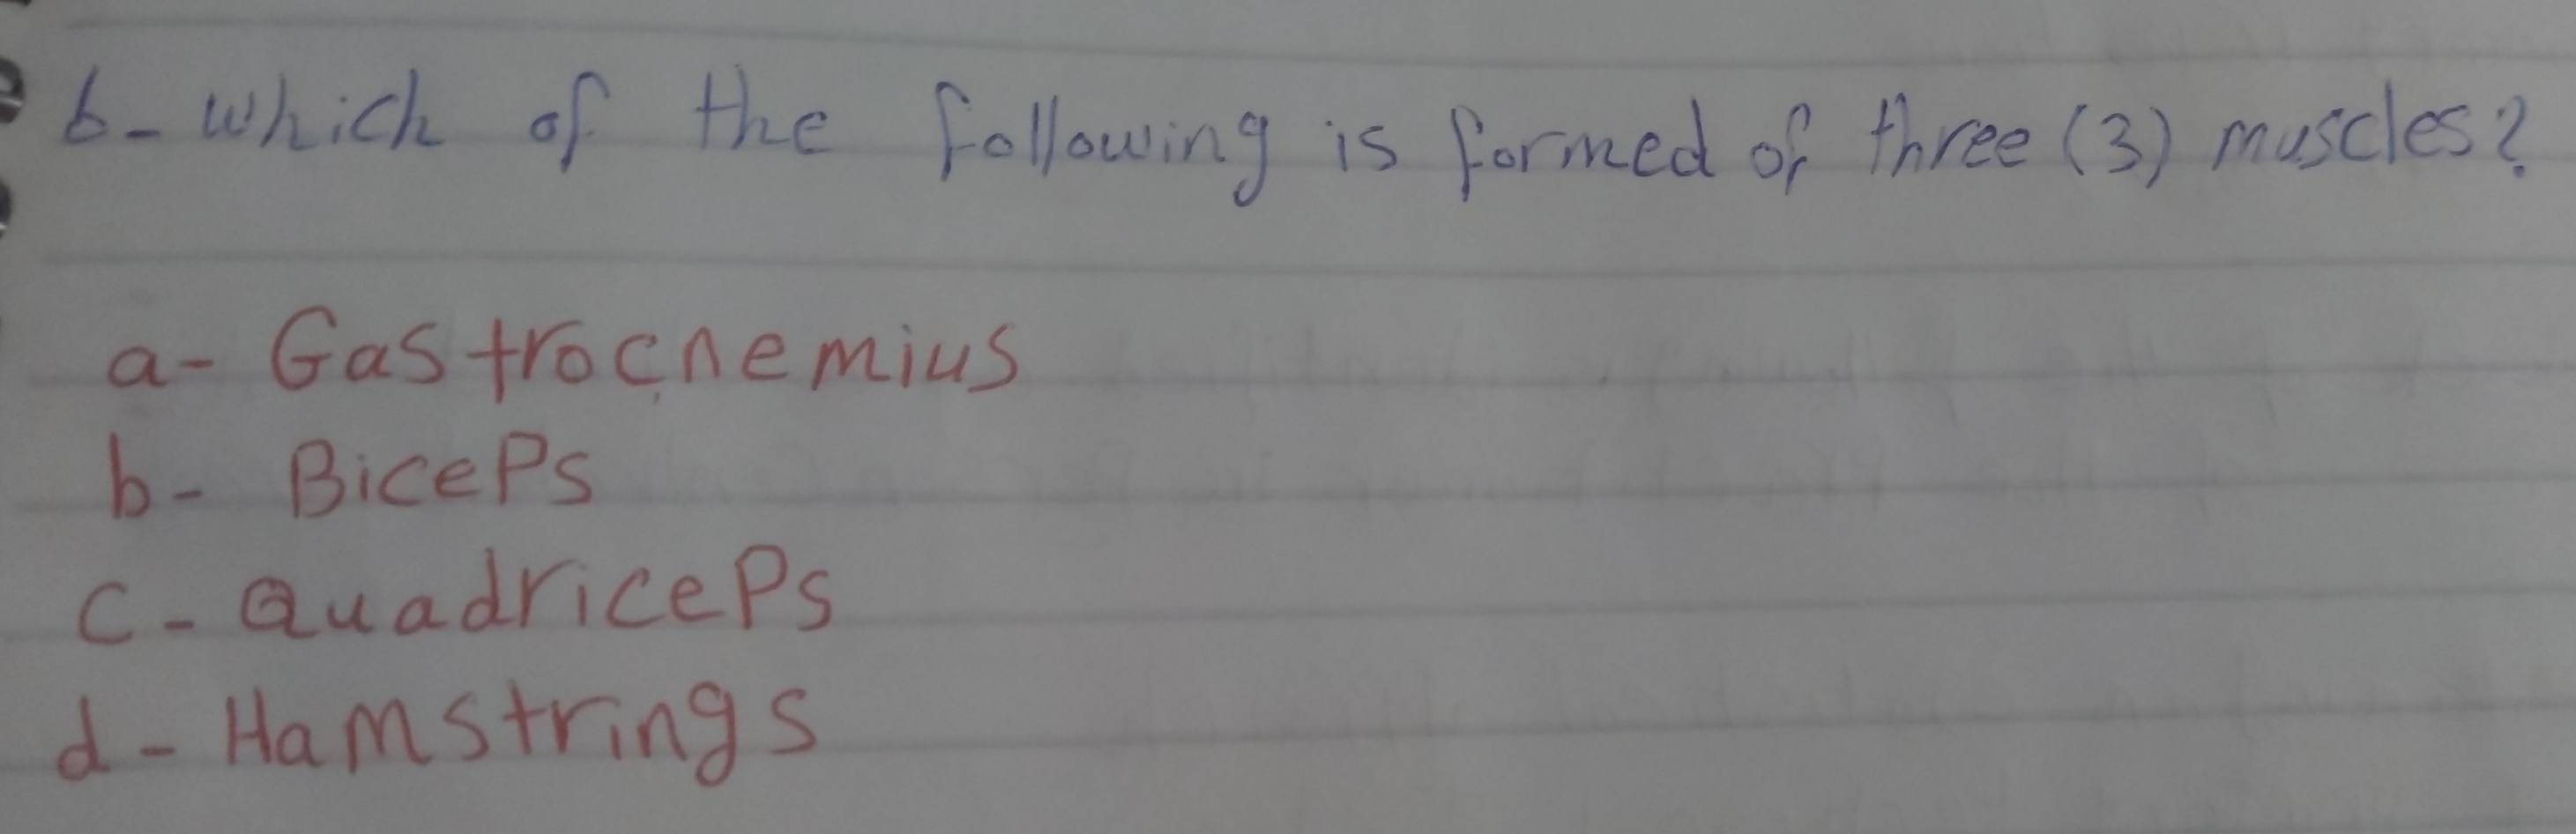 6- which of the following is formed of three (3) muscles?
a- Gastrocnemius
b- Biceps
c- Quadriceps
d- Hamstrings